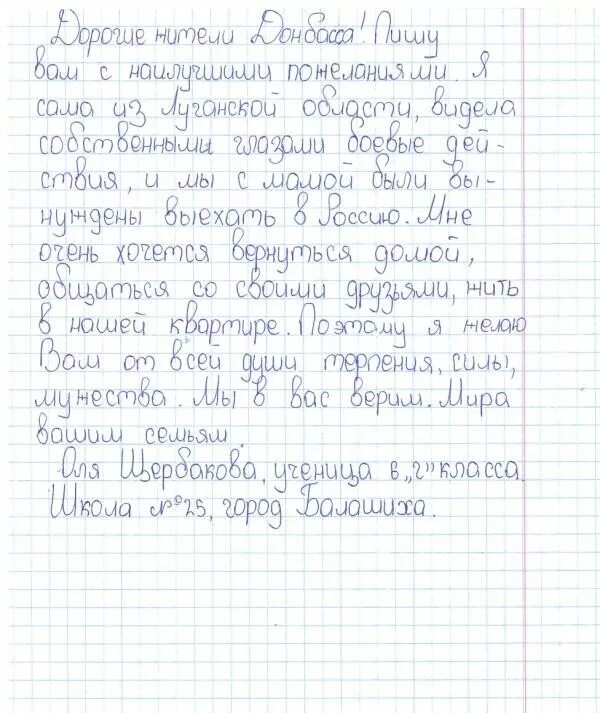 Дорогие жители Донбасса! Пишу
вам с наилучшими пожеланиями. Я
сама из Луганской области, видела
собственными глазами боевые дей-
ствия, и мы с мамой были вы-
нуждены выехать в Россию. Мне
очень хочется вернуться домой,
общаться со своими друзьями, жить
в нашей квартире. Поэтому я желаю
Вам от всей души терпения, силы,
мужества. Мы в вас верим. Мира
вашим семьям.
Оля Щербакова, ученица 6 „г" класса.
Школа №25, город Балашиха.